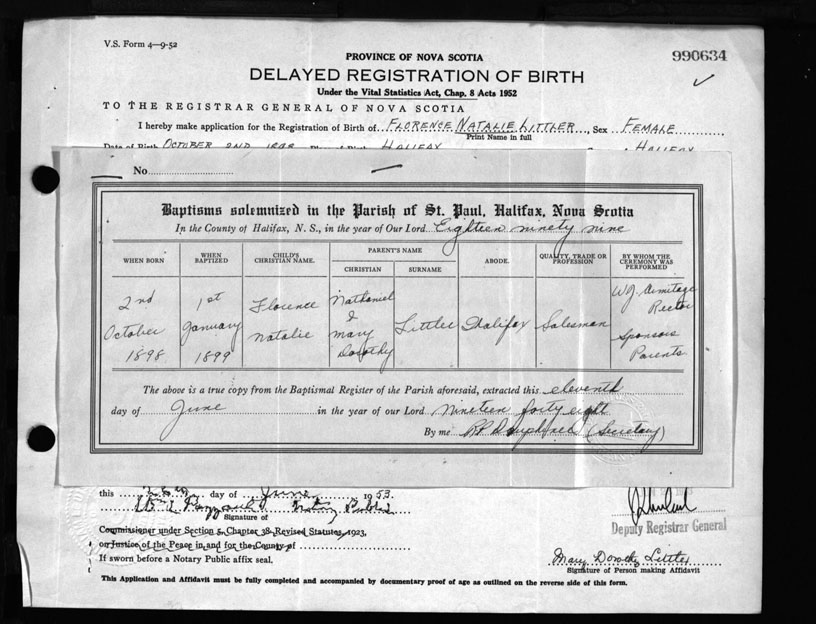 V.S. Form 4—9-52
990634
PROVINCE OF NOVA SCOTIA
DELAYED REGISTRATION OF BIRTH
Under the Vital Statistics Act, Chap. 8 Acts 1952
TO THE REGISTRAR GENERAL OF NOVA SCOTIA
I hereby make application for the Registration of Birth of FLORENCE NATALIE LITTLER, Sex FEMALE
Print Name in full
Date of Birth OCTOBER 2ND 1898 HALIFAX HALIFAX
No.
Baptisms solemnized in the Parish of St. Paul, Halifax, Nova Scotia
In the County of Halifax, N. S., in the year of Our Lord Eighteen ninety nine
WHEN BORN WHEN BAPTIZED CHILD'S CHRISTIAN NAME. PARENT'S NAME CHRISTIAN SURNAME ABODE. QUALITY, TRADE OR PROFESSION BY WHOM THE CEREMONY WAS PERFORMED
2nd October 1898 1st January 1899 Florence Natalie Nathaniel & Mary Dorothy Littler Halifax Salesman W.J. Armitage Rector Sponsors Parents
The above is a true copy from the Baptismal Register of the Parish aforesaid, extracted this eleventh
day of June in the year of our Lord Nineteen forty eight
By me (Secretary)
this day of June 1953.
Notary Public
Signature of
Commissioner under Section 5, Chapter 38 Revised Statutes, 1923,
or Justice of the Peace in and for the County of
If sworn before a Notary Public affix seal.
Deputy Registrar General
Mary Dorothy Littler
Signature of Person making Affidavit
This Application and Affidavit must be fully completed and accompanied by documentary proof of age as outlined on the reverse side of this form.